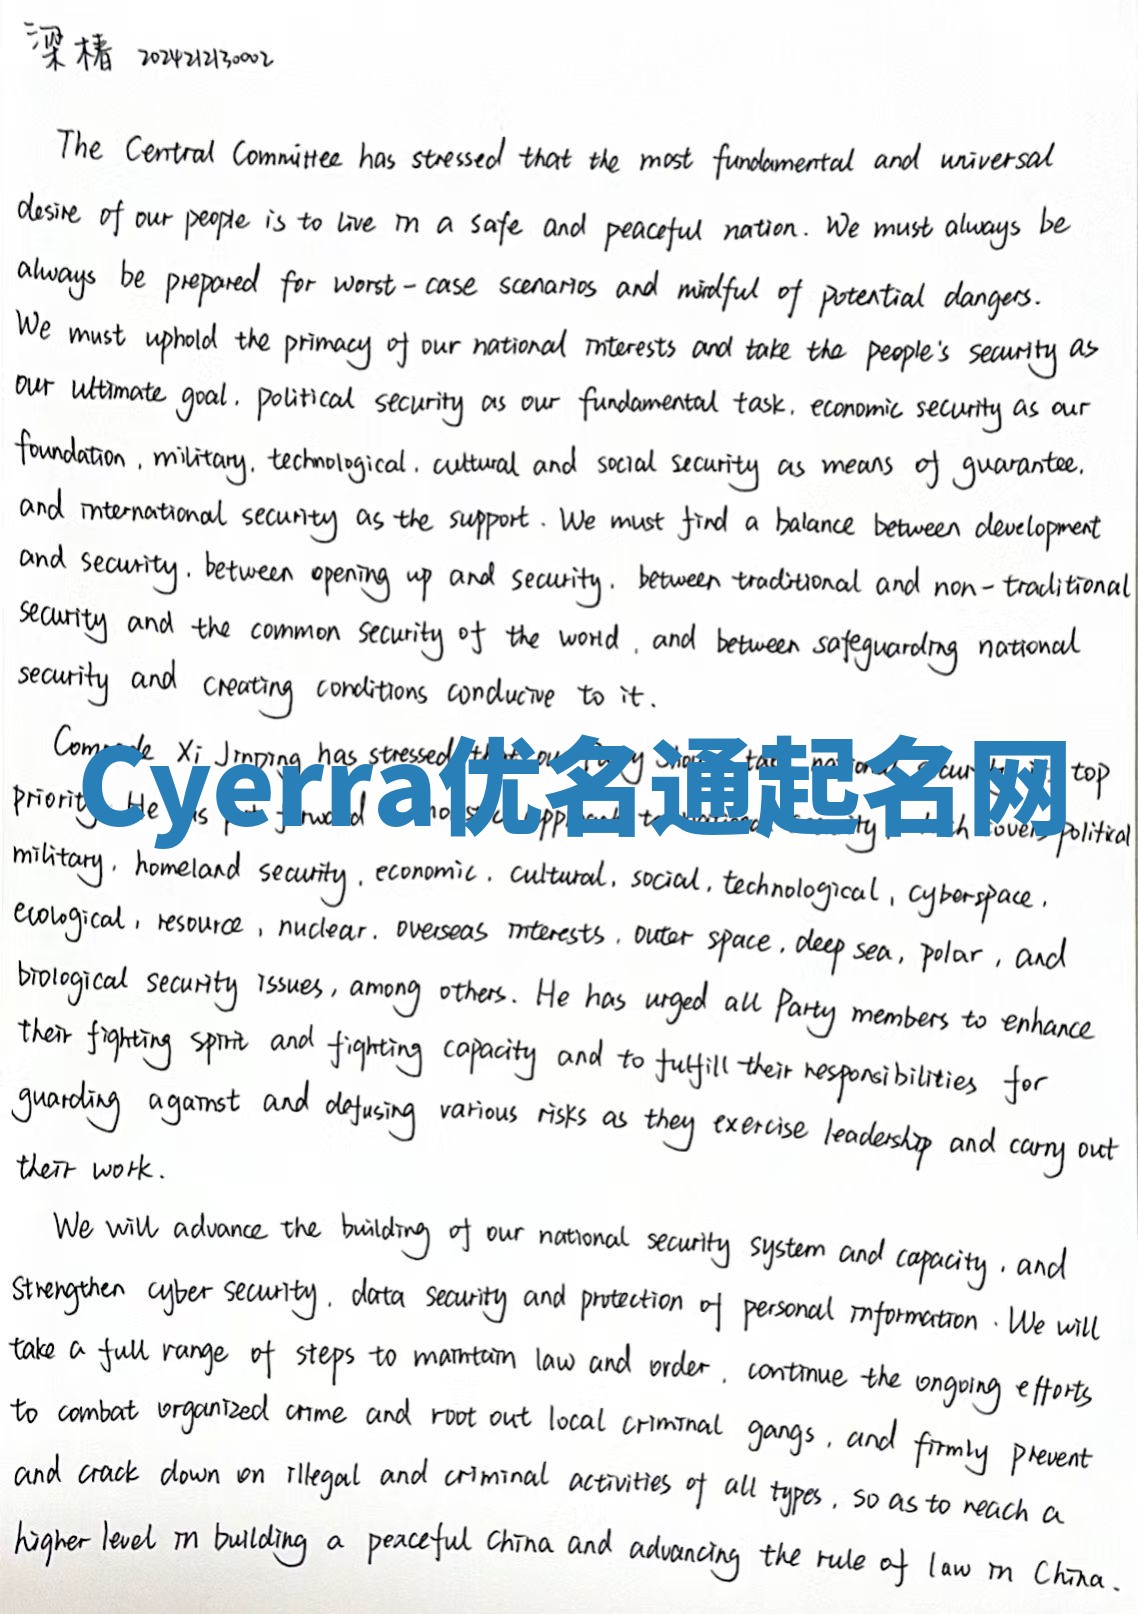 梁椿 2024212130002
The Central Committee has stressed that the most fundamental and universal
desire of our people is to live in a safe and peaceful nation. We must always be
always be prepared for worst-case scenarios and mindful of potential dangers.
We must uphold the primacy of our national interests and take the people's security as
our ultimate goal, political security as our fundamental task, economic security as our
foundation, military, technological, cultural and social security as means of guarantee,
and international security as the support. We must find a balance between development
and security, between opening up and security, between traditional and non-traditional
security and the common security of the world, and between safeguarding national
security and creating conditions conducive to it.
Xi Jinping has stressed top
Cyerra优名通起名网
political
military, homeland security, economic, cultural, social, technological, cyberspace,
ecological, resource, nuclear, overseas interests, outer space, deep sea, polar, and
biological security issues, among others. He has urged all Party members to enhance
their fighting spirit and fighting capacity and to fulfill their responsibilities for
guarding against and defusing various risks as they exercise leadership and carry out
their work.
We will advance the building of our national security system and capacity, and
strengthen cyber security, data security and protection of personal information. We will
take a full range of steps to maintain law and order, continue the ongoing efforts
to combat organized crime and root out local criminal gangs, and firmly prevent
and crack down on illegal and criminal activities of all types, so as to reach a
higher level in building a peaceful China and advancing the rule of law in China.